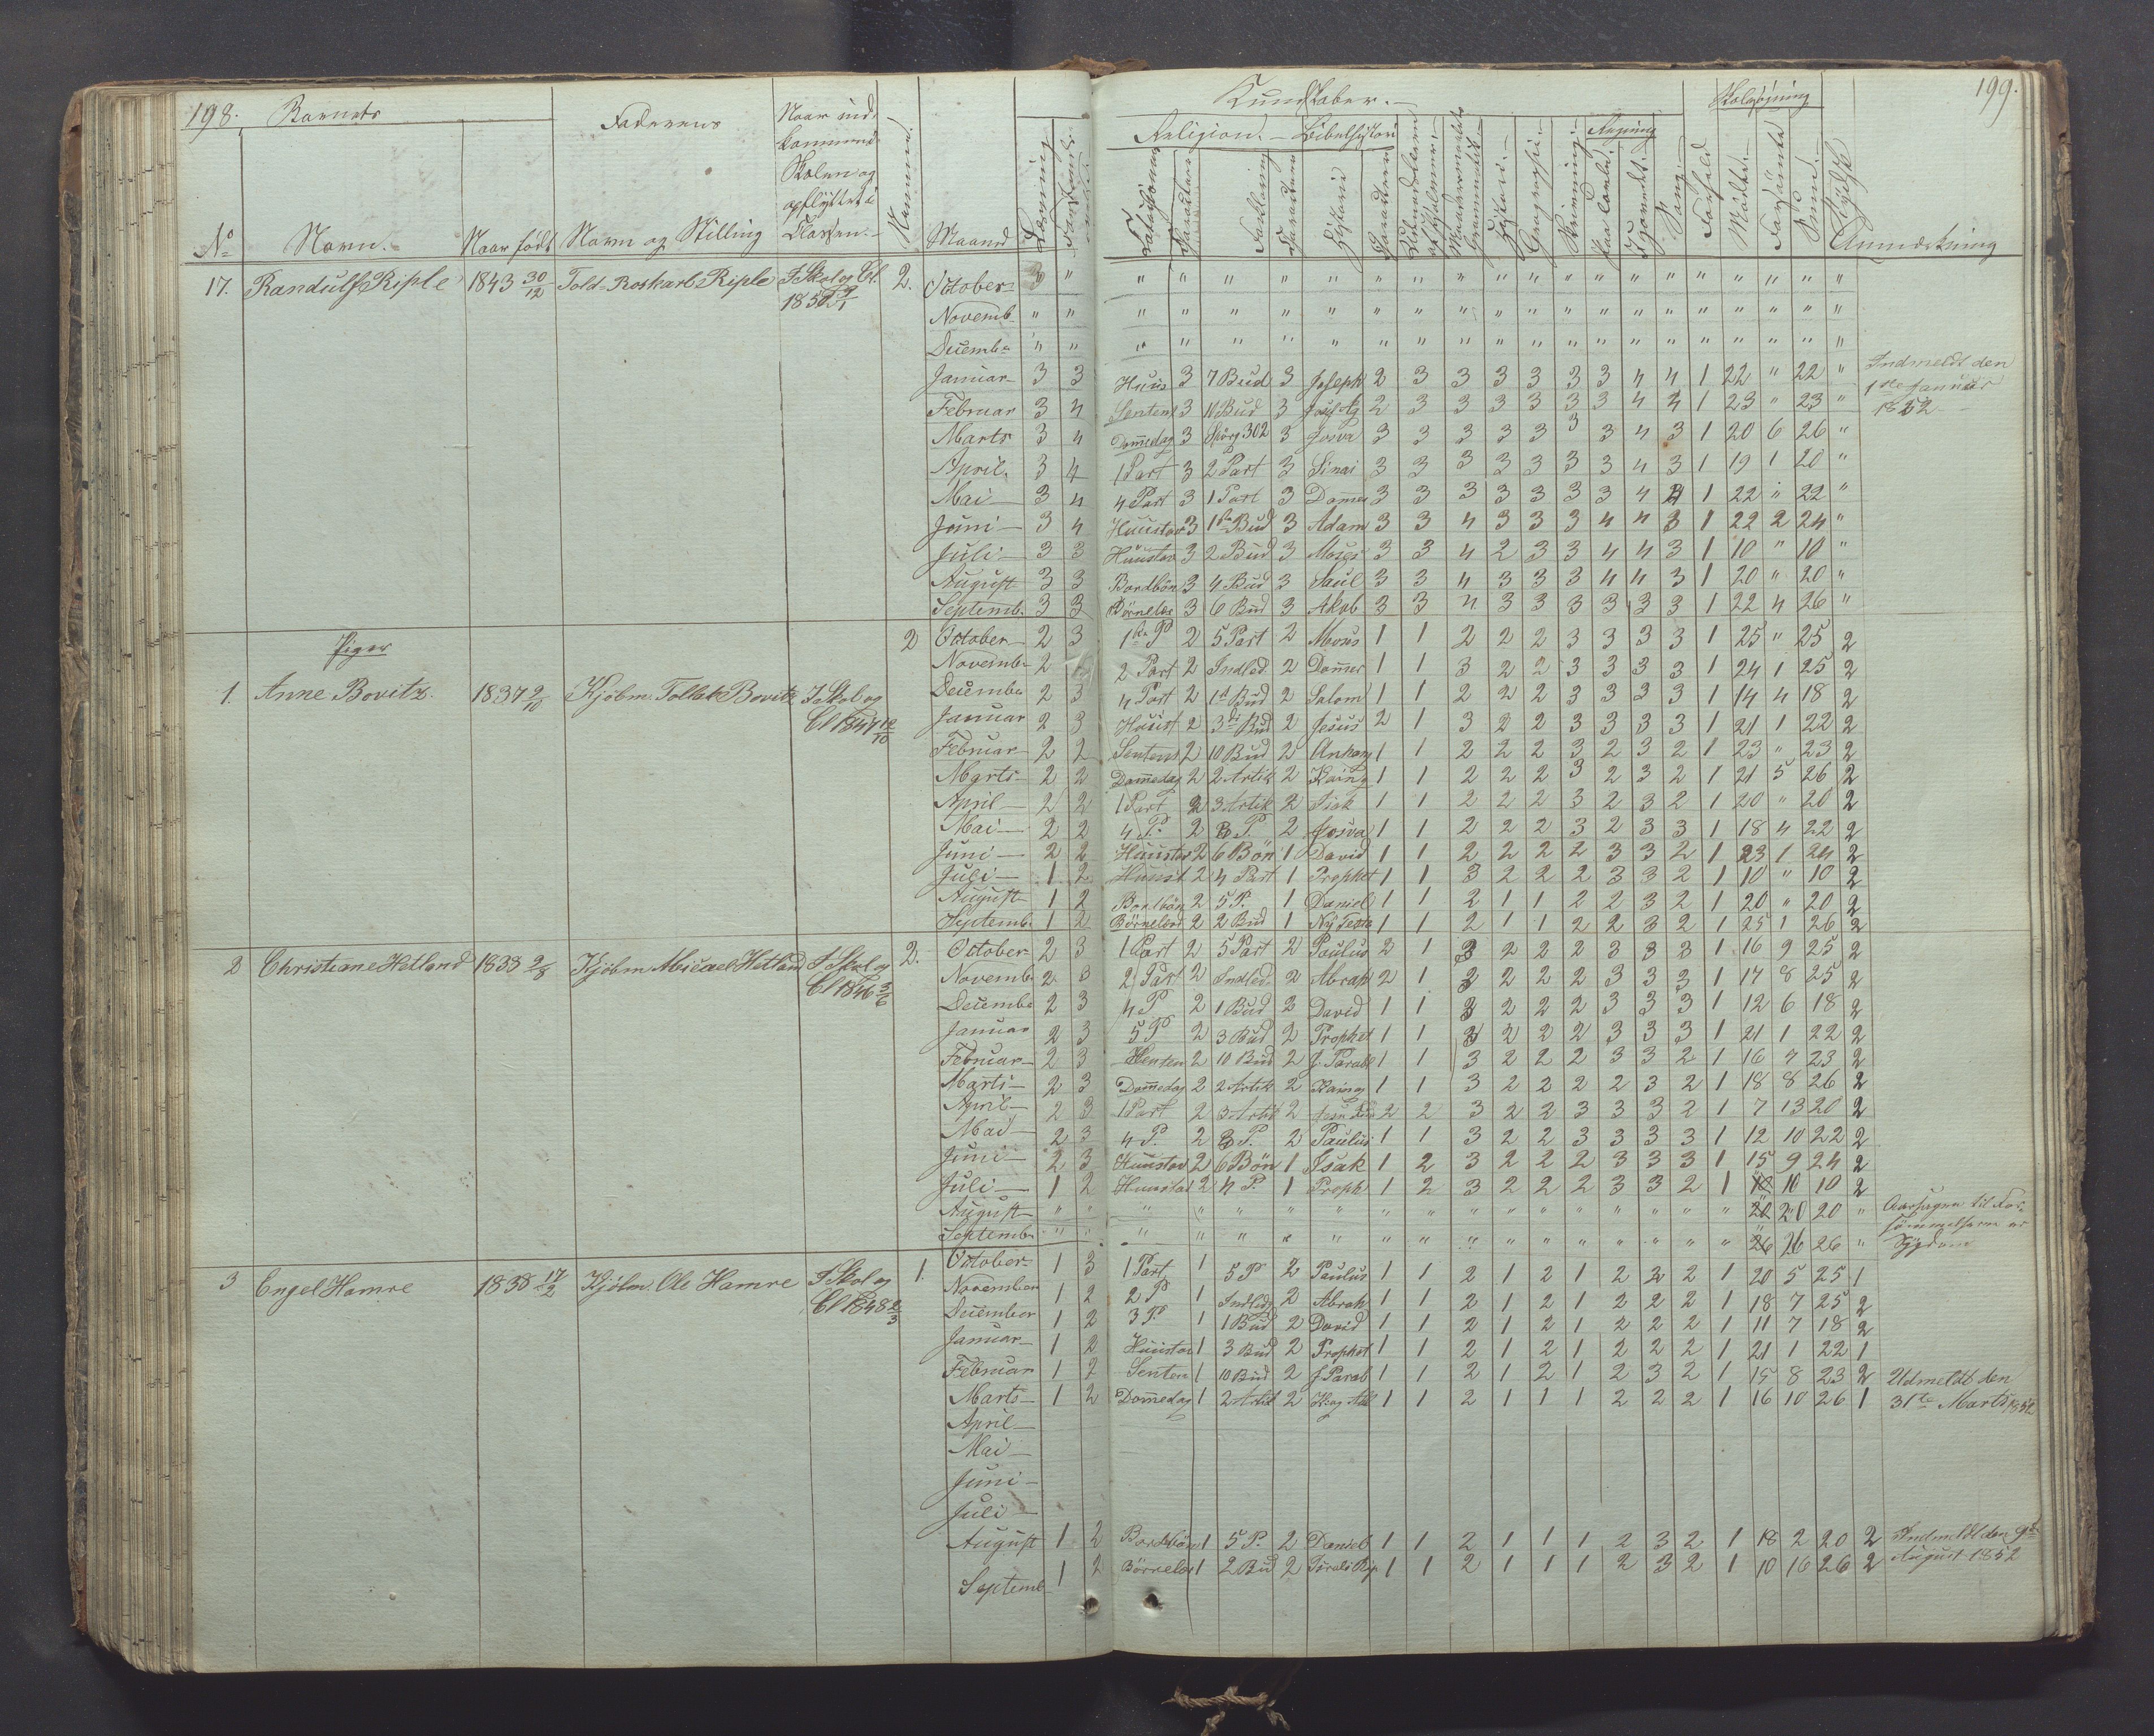 198. Barnets
Faderens
Naar ind-
kommen i
Skolen og
opflyttet i
Classen.
Nummer.
Maaned
Læsning
No
Navn.
Naar født
Navn og Stilling
Kundskaber.
Religion. Bibelhistori
Skolesøgning
199.
Regning
Udenadslæren
Modersmaalets
Grammatik
Historie
Geographie
Skrivning
Sang
Forhold
Mødte
Forsømte
Sum
Anmærkning
17. Randulf Riple 1843 30/12 Told-Roskarl Riple I Skol og Cl. 2. October 3 "
Novemb. " "
Decembr " "
Januar 3 3 Huus 3 7 Bud 3 Joseph 2 3 3 3 3 3 3 4 4 1 22 " 22 " Indmeldt den
1ste Januar
1852
Februar 3 4 Sentens 3 10 Bud 3 2 3 3 3 3 3 3 4 4 1 23 " 23 "
Marts 3 4 Domedag 3 Spørg 302 3 Josva 3 3 3 3 3 3 3 4 3 1 20 6 26 "
April 3 4 1 Part 3 2 Part 3 Sinai 3 3 3 3 3 3 3 4 3 1 19 1 20 "
Mai 3 4 4 Part 3 1 Part 3 Domer 3 3 3 3 3 3 3 4 4 1 22 " 22 "
Juni 3 4 Huustav 3 1ste Bud 3 Adam 3 3 4 3 3 3 4 4 3 1 22 2 24 "
Juli 3 3 Huustav 3 2 Bud 3 Moses 3 3 4 2 3 3 4 4 3 1 10 " 10 "
August 3 3 Bordbön 3 4 Bud 3 Saul 3 3 4 3 3 3 4 4 3 1 20 " 20 "
Septemb. 3 3 Börnelær 3 6 Bud 3 Akab 3 3 4 3 3 3 3 3 3 1 22 4 26 "
Piger
2 October 2 3 1ste P 2 5 Part 2 Moses 1 1 2 2 2 3 3 3 3 1 25 " 25 2
Novembr 2 2 Part 2 Indled 2 Domer 1 1 3 2 2 3 3 3 3 1 24 1 25 2
1. Anne Bovitz. 1837 2/10 Kjöbm. Tollak Bovitz I Skol og
Cl 1847 12/10
Decembr 2 3 4 Part 2 1st Bud 2 Salom 1 1 2 2 2 3 3 3 3 1 14 4 18 2
Januar 2 3 Huust 2 3die Bud 2 Jesus 2 1 3 2 2 3 3 3 3 1 21 1 22 2
Februar 2 2 Sentens 2 10 Bud 2 Anhang 1 1 2 2 2 3 2 3 2 1 23 " 23 2
Marts 2 2 Domedag 2 2 Artik 2 1 1 2 2 2 3 2 3 2 1 21 5 26 2
April 2 2 1 Part 2 3 Artik 2 1 1 2 2 2 3 2 3 2 1 20 " 20 2
Mai 2 2 4 P. 2 P. 2 Josva 1 1 2 2 2 3 2 3 3 1 18 4 22 2
Juni 2 2 Huustav 2 6 Bön 1 David 1 1 2 2 2 2 3 3 2 1 23 1 24 2
Juli 1 2 Huust 2 4 Part 1 Prophet 1 1 3 2 2 2 3 3 2 1 10 " 10 2
August 1 2 Bordbön 2 5 P. 1 Daniel 1 1 2 1 1 2 2 3 2 1 20 " 20 2
Septemb. 1 2 Börnelærd 2 2 Bud 1 Ny Testa 1 1 2 1 1 2 2 3 2 1 25 1 26 2
2 Christiane Hetland 1838 2/8 Kjöbm Micael Hetland I Skol og
Cl 1846 3/6
2. October 2 3 1 Part 2 5 Part 2 Paulus 2 1 3 2 2 2 3 3 3 1 16 9 25 2
Novemb. 2 3 2 Part 2 Indled. 2 Abrah 2 1 3 2 2 2 3 3 3 1 17 8 25 2
Decembr 2 3 4 P 2 1 Bud 2 David 1 1 3 2 2 2 3 3 3 1 12 6 18 2
Januar 2 3 5 P 2 3 Bud 2 Prophet 1 1 3 2 2 2 3 3 3 1 21 1 22 2
Februar 2 3 Senten 2 10 Bud 2 J. Parabl 1 1 3 2 2 2 3 3 2 1 16 7 23 2
Marts 2 3 Domedag 2 2 Artik 2 1 1 3 2 2 2 2 3 2 1 18 8 26 2
April 2 3 1 Part 2 3 Artik 2 2 2 3 2 2 3 3 3 2 1 7 13 20 2
Mai 2 3 4 P. 2 P. 2 Paulus 1 1 3 2 2 3 3 3 3 1 12 10 22 2
Juni 2 3 Huustav 2 6 Bön 1 Isak 1 2 3 2 2 2 3 3 3 1 15 9 24 2
Juli 1 2 Huustav 2 4 P. 1 Proph 1 2 3 2 2 2 3 3 2 1 10 10 2
August " " 20 20 " Aarsagen til For-
sömmelserne er
Sygdom
Septembr " " 26 26 "
3 Engel Hamre 1838 17/2 Kjöbm. Ole Hamre I Skol og
Cl 1848 2/3
1. October 1 3 1 Part 1 5 P 2 Paulus 1 1 2 1 2 1 2 2 2 1 20 5 25 1
November 1 2 2 P 1 Indledg 2 Abrah 1 1 2 1 2 1 2 2 2 1 18 7 25 2
December 1 2 3 P. 1 1 Bud 2 David 1 1 2 1 2 1 2 2 2 1 11 7 18 2
Januar 1 2 Huustav 1 3 Bud 2 Prophet 1 1 2 1 2 1 2 2 2 1 21 1 22 1
Februar 1 2 Senten 1 10 Bud 2 J Parab 1 1 2 1 2 1 2 3 2 1 15 8 23 2 Udmeldt den
31te Marts 1852
Marts 1 2 Domedag 1 2 Artik 2 1 1 2 1 1 1 2 2 2 1 16 10 26 1
April
Mai
Juni
Juli
August 1 2 Bordbön 1 5 P. 2 Daniel 1 1 2 1 1 1 2 3 2 1 18 2 20 2 Indmeldt den 9de
August 1852
Septemb 1 2 Börnelær 1 2 Bud 2 1 1 2 1 1 1 2 3 2 1 10 16 26 2